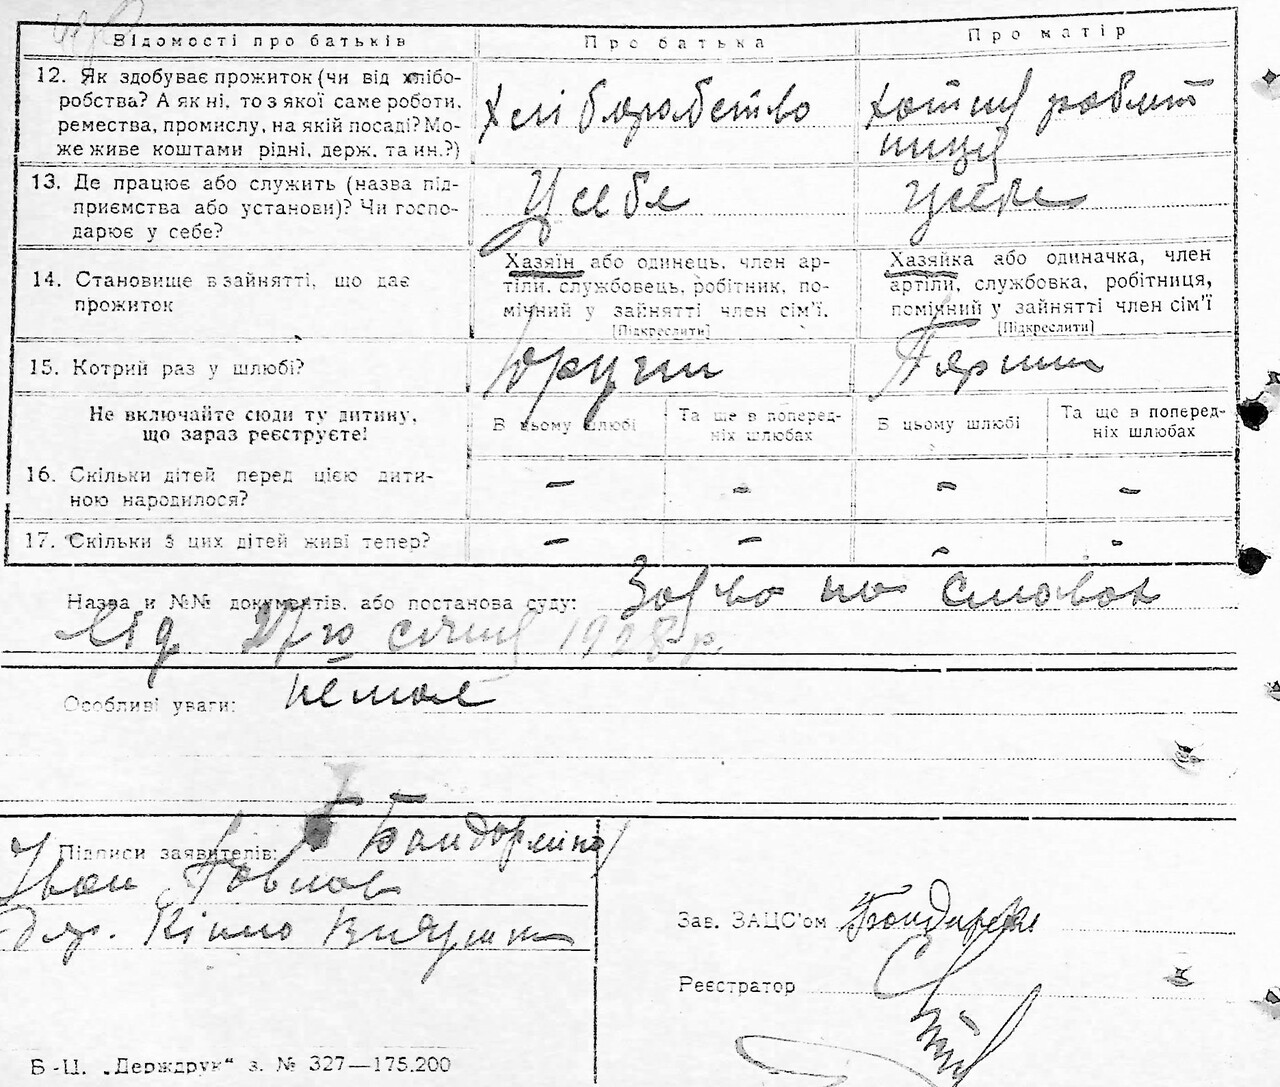 Відомості про батьків
Про батька
Про матір
12. Як здобуває прожиток (чи від хлібо-
робства? А як ні, то з якої саме роботи,
ремества, промислу, на якій посаді? Мо-
же живе коштами рідні, держ. та ин.?)
Хліборобство
хатня робіт
ниця
13. Де працює або служить (назва під-
приємства або установи)? Чи госпо-
дарює у себе?
У себе
У себе
14. Становище в зайнятті, що дає
прожиток
Хазяїн або одинець, член ар-
тіли, службовець, робітник, по-
мічний у зайнятті член сім'ї.
[Підкреслити]
Хазяйка або одиначка, член
артіли, службовка, робітниця,
помічний у зайнятті член сім'ї
[Підкреслити]
15. Котрий раз у шлюбі?
Другий
Перший
Не включайте сюди ту дитину,
що зараз реєструєте!
В цьому шлюбі
Та ще в поперед-
ніх шлюбах
В цьому шлюбі
Та ще в поперед-
ніх шлюбах
16. Скільки дітей перед цією дити-
ною народилося?
– – – –
17. Скільки з цих дітей живі тепер?
– – – –
Назва и №№ документів, або постанова суду:
від 27го січня 1928 р.
Особливі уваги: немає
Підписи заявителів:
Іван
Зав. ЗАЦС'ом Бондаренко
Реєстратор
Б-Ц. „Держдрук“ з. № 327—175.200